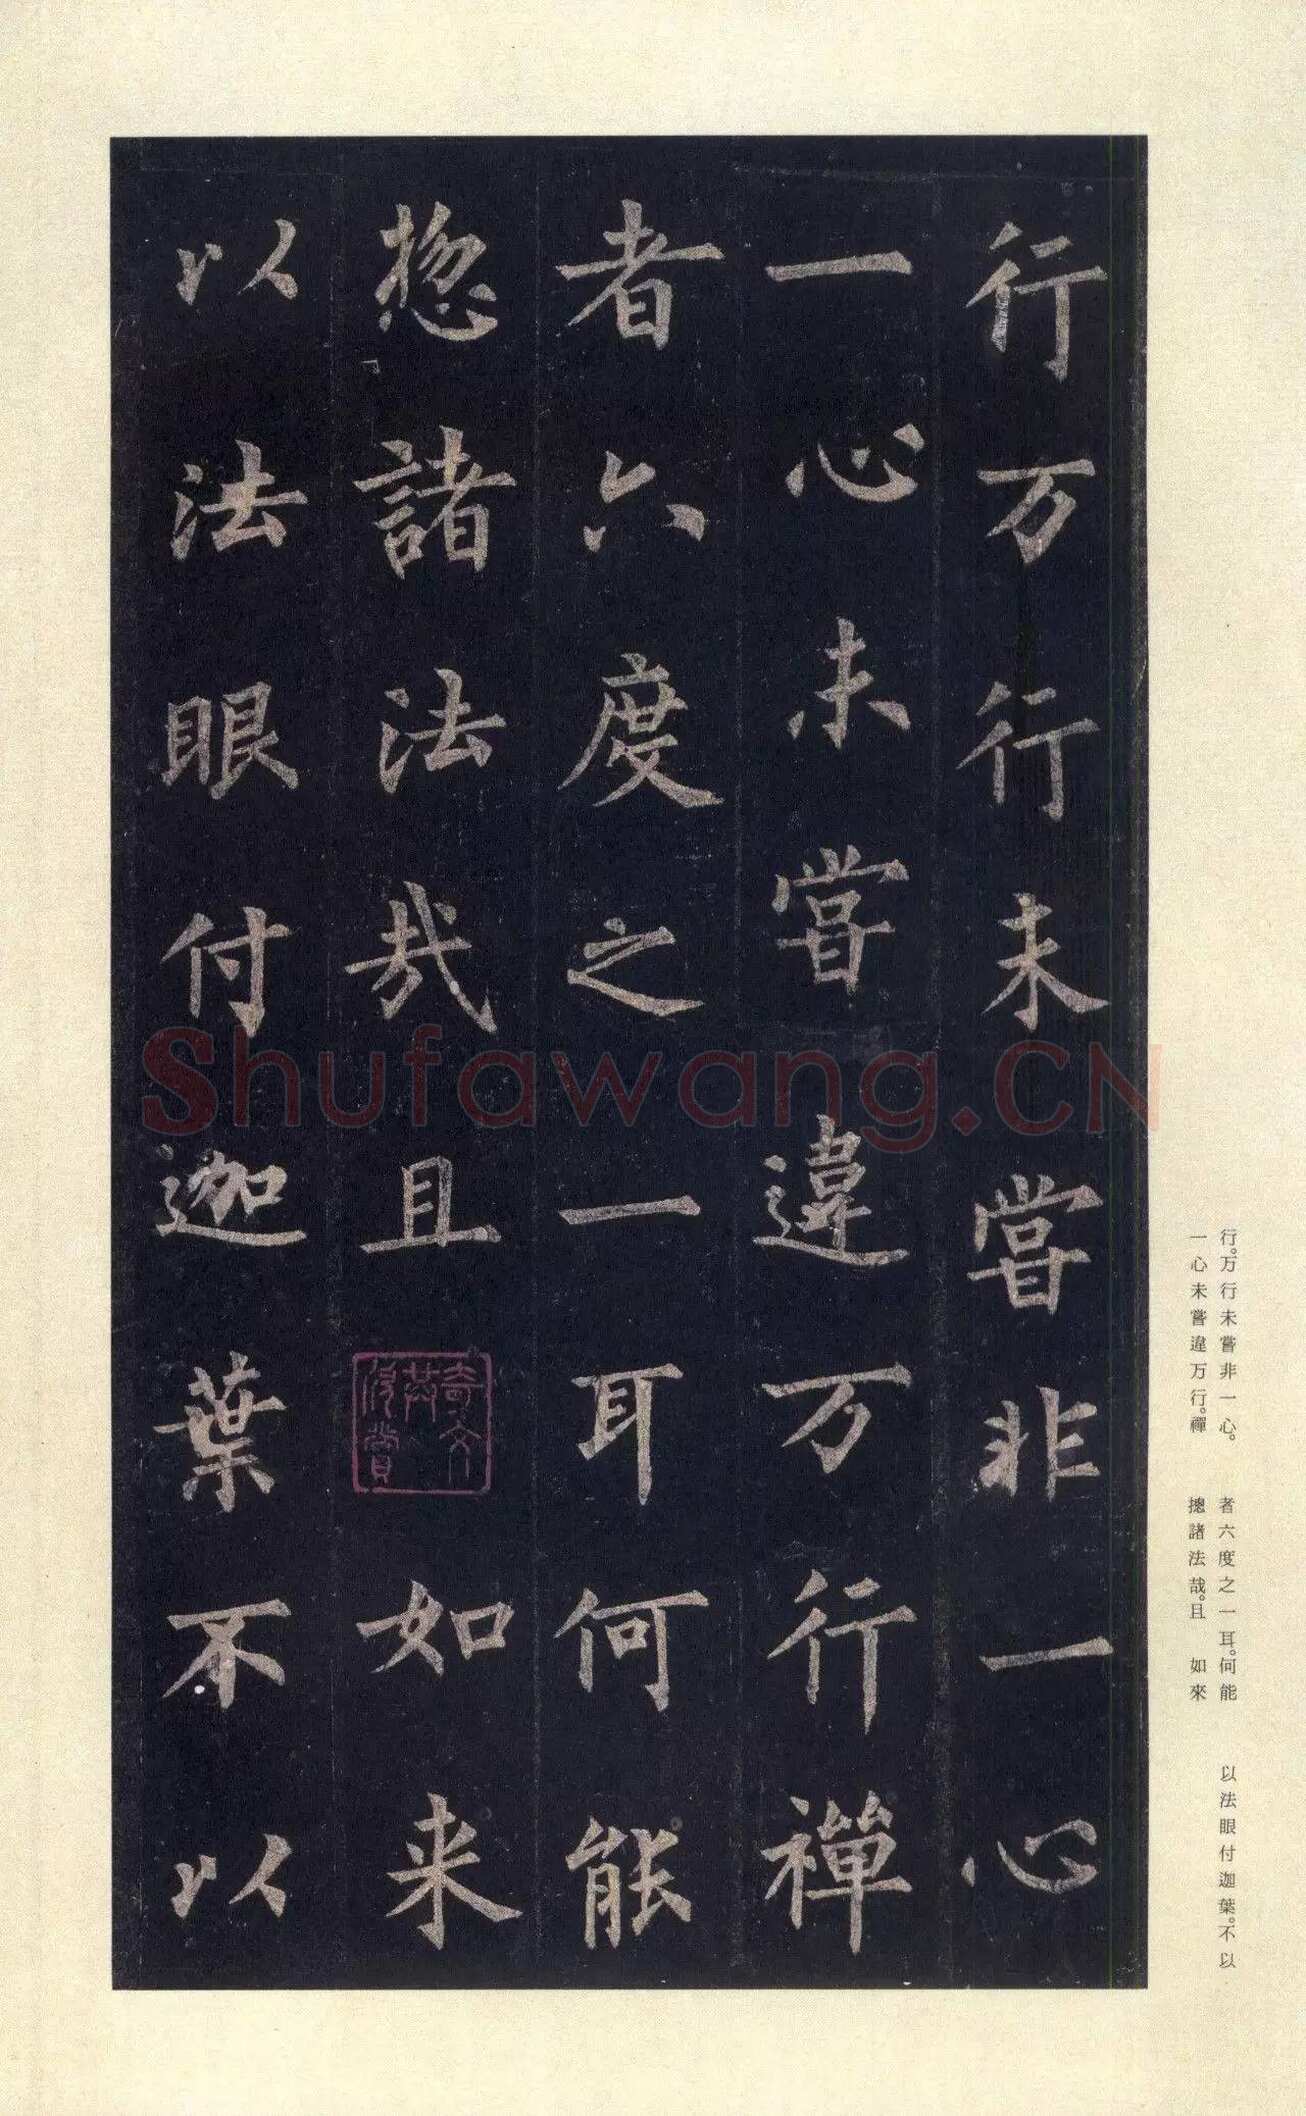 行万行未嘗非一心
一心未嘗違万行禅
者六度之一耳何能
揔諸法哉且如来
以法眼付迦葉不以
奇文共欣賞
Shufawang.CN
行。万行未嘗非一心。
一心未嘗違万行。禪
者六度之一耳。何能
摠諸法哉。且 如來
以法眼付迦葉。不以